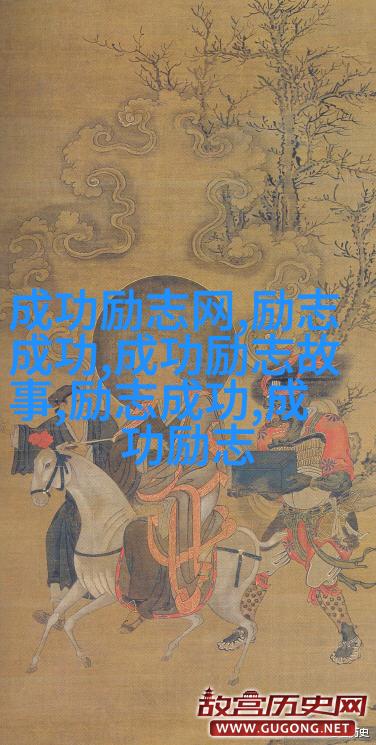 成功励志网,励志
成功,成功励志故
事,励志成功,成
功励志
故宫历史网
WWW.GUGONG.NET
历史